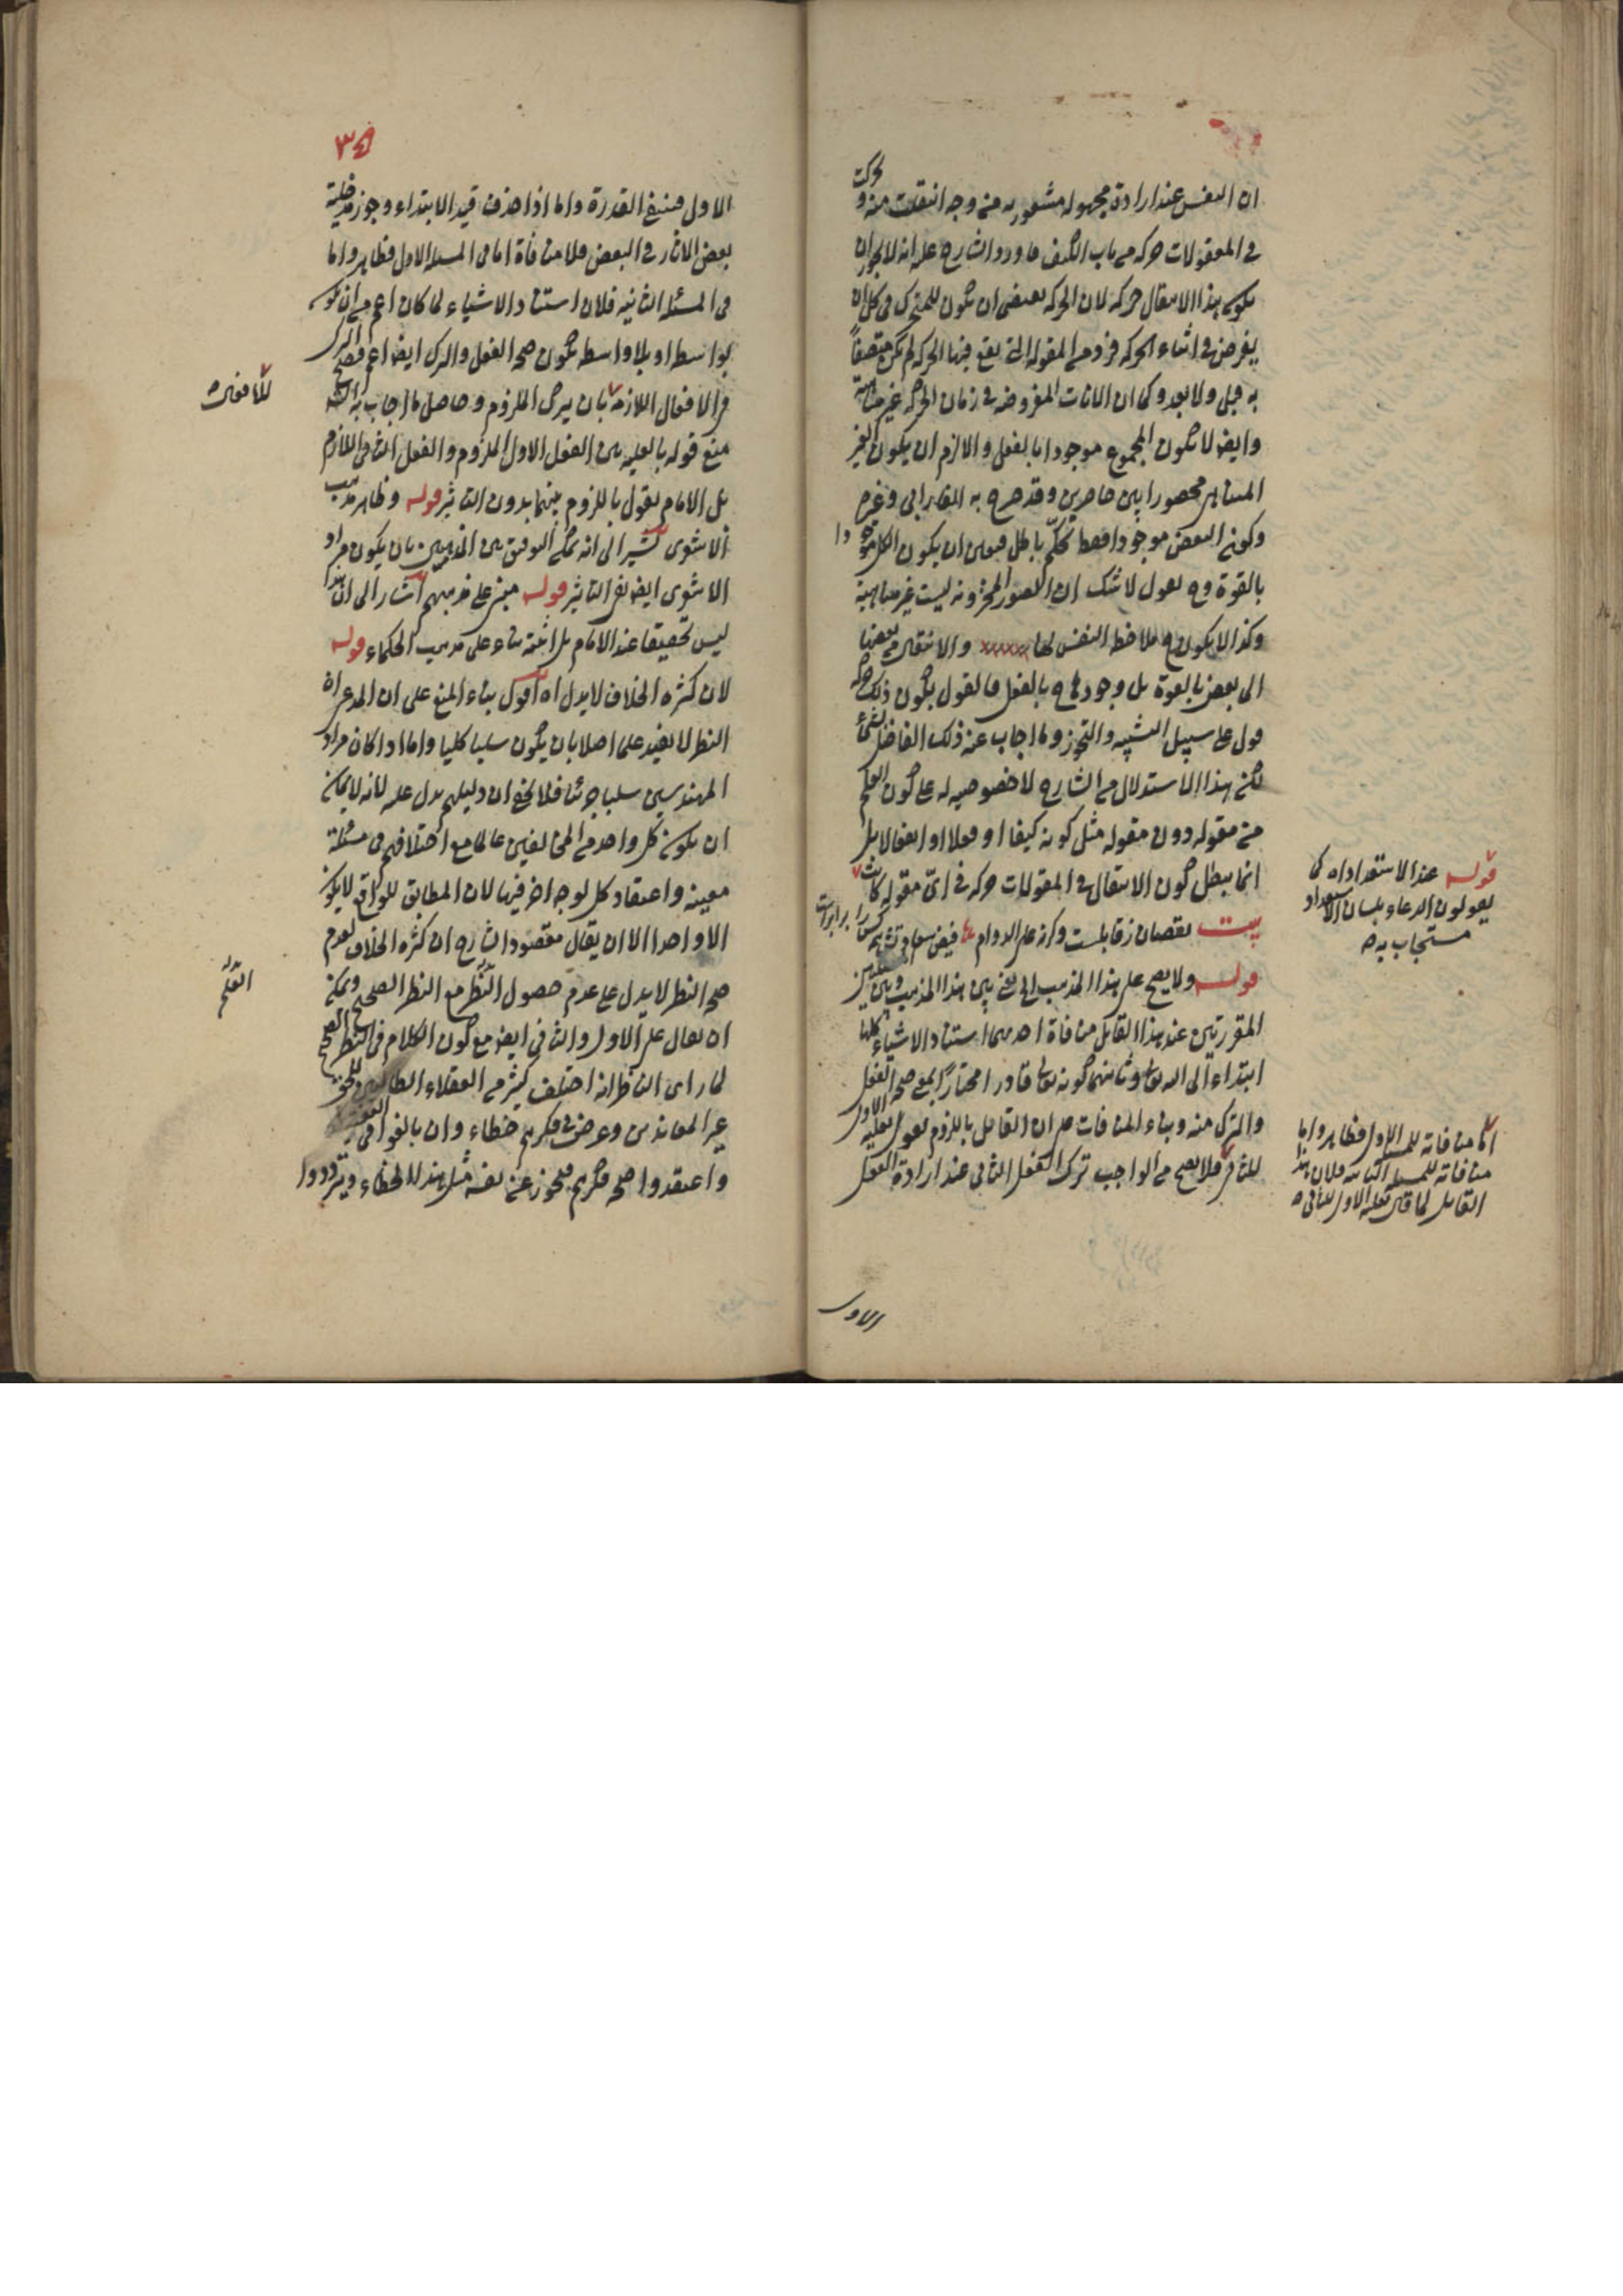 ان النفس عند ارادة مجهولة مشعور به من وجه انتقلت منه و تحركت
في المعقولات حركة من باب الكيف فاورد الشارح عليه انه لا يجوز ان
يكون هذا الانتقال حركة لان الحركة يقتضي ان يكون للمتحرك في كل ان
يفرض في اثناء الحركة فرد من المقولة التي يقع فيها الحركة لم يكن متصفاً
به قبل ولا بعد وكما ان الانات المفروضة في زمان الحركة غير متناهية
وايضا لا يكون المجموع موجودا بالفعل والا لزم ان يكون الغير
المتناهي محصورا بين حاصرين وقد صرح به الفارابي وغيره
وكون البعض موجودا فقط تحكم باطل فتعين ان يكون الكل
بالقوة وح نقول لا شك ان الصور المخزونة ليست غير متناهية
وكذا لا يكون ح ملاحظ النفس لها والانتقال من بعضها
الى بعض بالقوة بل وجودها ح بالفعل فالقول بكون ذلك حركة
قول على سبيل التشبيه والتجوز وما اجاب عنه ذلك الفاضل بشئ
لكن هذا الاستدلال من الشارح لا خصوصية له على كون العلم
من مقولة دون مقولة مثل كونه كيفا او فعلا او انفعالا بل
انما يبطل كون الانتقال في المعقولات حركة في اي مقولة كانت
بيت نقصان ز قابلست وكرنه على الدوام فيض سعادتش همه كس را برابرست
قوله ولا يصح على هذا المذهب الى يعني بين هذا المذهب وبين المسئلتين
المقررتين عند هذا القائل منافاة احديهما استناد الاشياء كلها
ابتداء الى الله تعالى وثانيهما كونه تعالى قادرا مختاراً بمعنى صحة الفعل
والترك منه وبناء المنافات على ان القائل باللزوم يقول بعلية الاول
للثاني فلا يصح من الواجب ترك الفعل الثاني عند ارادة الفعل
قوله عند الاستعداد اه كما
يقولون الدعاء بلسان الاستعداد
مستجاب به
اما منافاته للمسئلة الاولى فظاهر واما
منافاته للمسئلة الثانية فلان هذا
القائل لما قال بعلية الاول للثاني
الاول
٣٥
الاول فينتفي القدرة واما اذا حذف قيد الابتداء وجوز مدخلية
بعض الاثار في البعض فلا منافاة اما في المسئلة الاولى فظاهر واما
في المسئلة الثانية فلان استناد الاشياء لما كان اعم من ان يكون
بواسطة او بلا واسطة يكون صحة الفعل والترك ايضا اعم فيصح الترك
في الافعال اللازمة بان يترك الملزوم وحاصل ما اجاب به الشارح
منع قوله بالعلية بين الفعل الاول الملزوم والفعل الثاني اللازم
بل الامام يقول باللزوم بينهما بدون التاثير قوله وظاهر مذهب
الاشعري يشير الى انه يمكن التوفيق بين المذهبين بان يكون مراد
الاشعري ايضا نفي التاثير قوله مبني على مذهبهم اشار الى ان هذا
ليس تحقيقا عند الامام بل اثبته بناء على مذهب الحكماء قوله
لان كثرة الخلاف لا يدل اه اقول بناء المنع على ان المدعى ان
النظر لا يفيد علما اصلا بان يكون سلبا كليا واما اذا كان مراد
المهندسين سلبا جزئيا فلا يخفى ان دليلهم يدل عليه لانه لا يمكن
ان يكون كل واحد من المخالفين عالما مع اختلافهم في مسئلة
معينة واعتقاد كل لوجه اخر فيها لان المطابق للواقع لا يكون
الا واحدا الا ان يقال مقصود الشارح ان كثرة الخلاف لعدم
صحة النظر لا يدل على عدم حصول النظر مع النظر الصحيح ويمكن
ان يقال على الاول والثاني ايضا مع كون الكلام في النظر الصحيح
لما راى الناظر انه اختلف كثير من العقلاء الطالبين للحق
غير المعاندين وعرض في فكرهم خطاء وان بالغوا في
واعتقدوا صحة فكرهم فيجوز عن نفسه مثل هذا الخطاء ويترددوا
للثاني
العلم